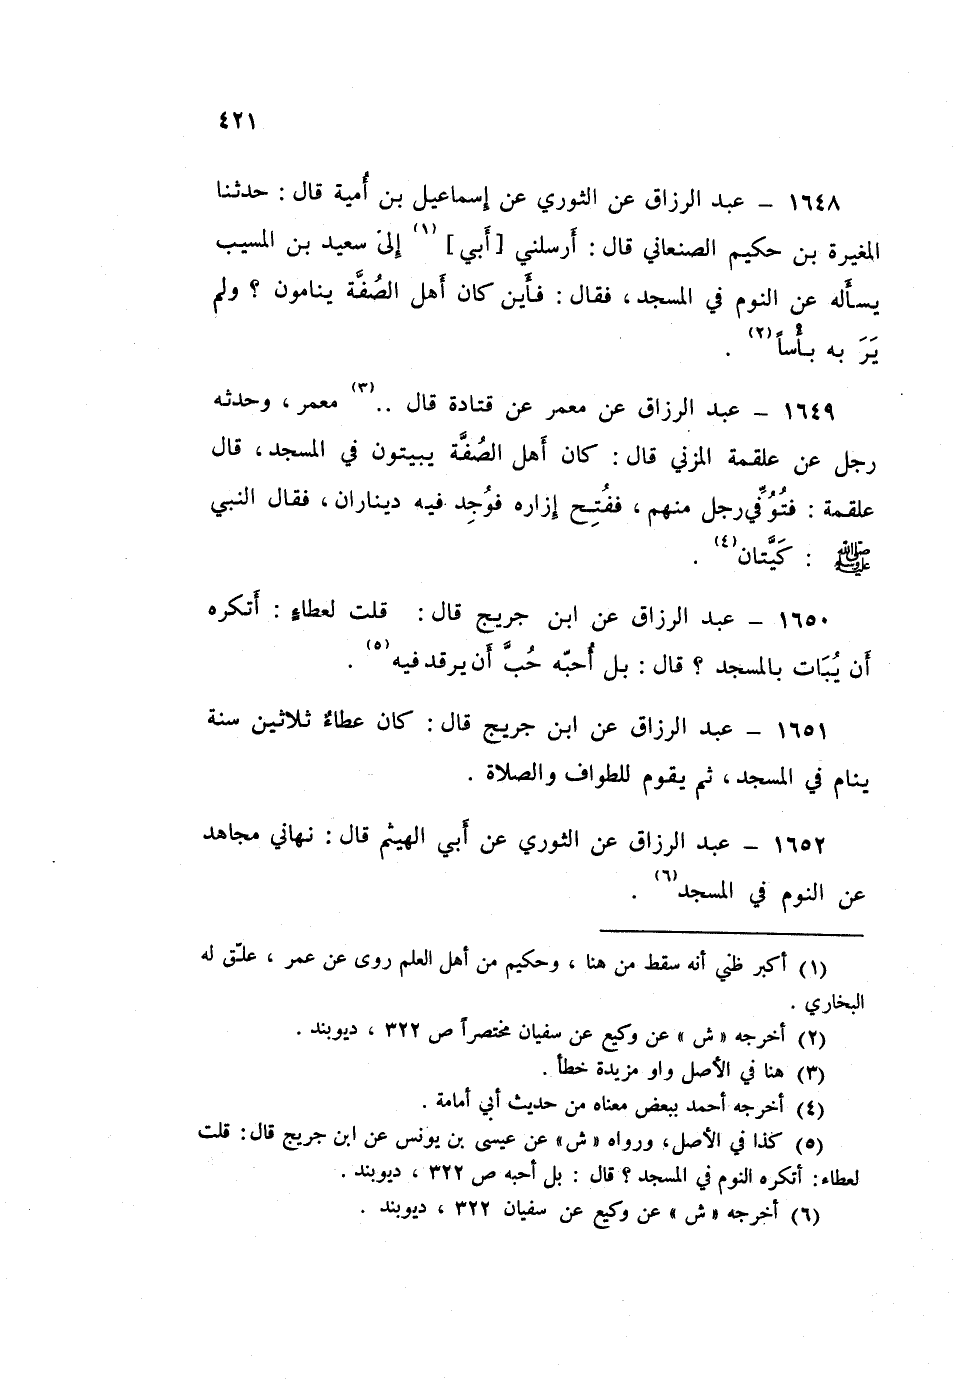 ٤٢١
١٦٤٨ – عبد الرزاق عن الثوري عن إسماعيل بن أُمية قال : حدثنا
المغيرة بن حكيم الصنعاني قال : أَرسلني [ أَبي ] (١) إلىٰ سعيد بن المسيب
يسأَله عن النوم في المسجد ، فقال : فأَين كان أَهل الصُفَّة ينامون ؟ ولم
يَرَ به بأْساً (٢) .
١٦٤٩ – عبد الرزاق عن معمر عن قتادة قال .. (٣) معمر ، وحدثه
رجل عن علقمة المزني قال : كان أَهل الصُفَّة يبيتون في المسجد ، قال
علقمة : فتُوُفِّي رجل منهم ، ففُتِح إزاره فوُجِد فيه ديناران ، فقال النبي
ﷺ : كَيَّتان (٤) .
١٦٥٠ – عبد الرزاق عن ابن جريج قال : قلت لعطاءٍ : أَتكره
أَن يُبَات بالمسجد ؟ قال : بل أُحبّه حُبَّ أَن يرقد فيه (٥) .
١٦٥١ – عبد الرزاق عن ابن جريج قال : كان عطاءٌ ثلاثين سنة
ينام في المسجد ، ثم يقوم للطواف والصلاة .
١٦٥٢ – عبد الرزاق عن الثوري عن أَبي الهيثم قال : نهاني مجاهد
عن النوم في المسجد (٦) .
(١) أكبر ظني أنه سقط من هنا ، وحكيم من أهل العلم روى عن عمر ، علّق له
البخاري .
(٢) أخرجه « ش » عن وكيع عن سفيان مختصراً ص ٣٢٢ ، ديوبند .
(٣) هنا في الأصل واو مزيدة خطأ .
(٤) أخرجه أحمد ببعض معناه من حديث أبي أمامة .
(٥) كذا في الأصل ، ورواه « ش » عن عيسى بن يونس عن ابن جريج قال : قلت
لعطاء : أتكره النوم في المسجد ؟ قال : بل أحبه ص ٣٢٢ ، ديوبند .
(٦) أخرجه « ش » عن وكيع عن سفيان ٣٢٢ ، ديوبند .